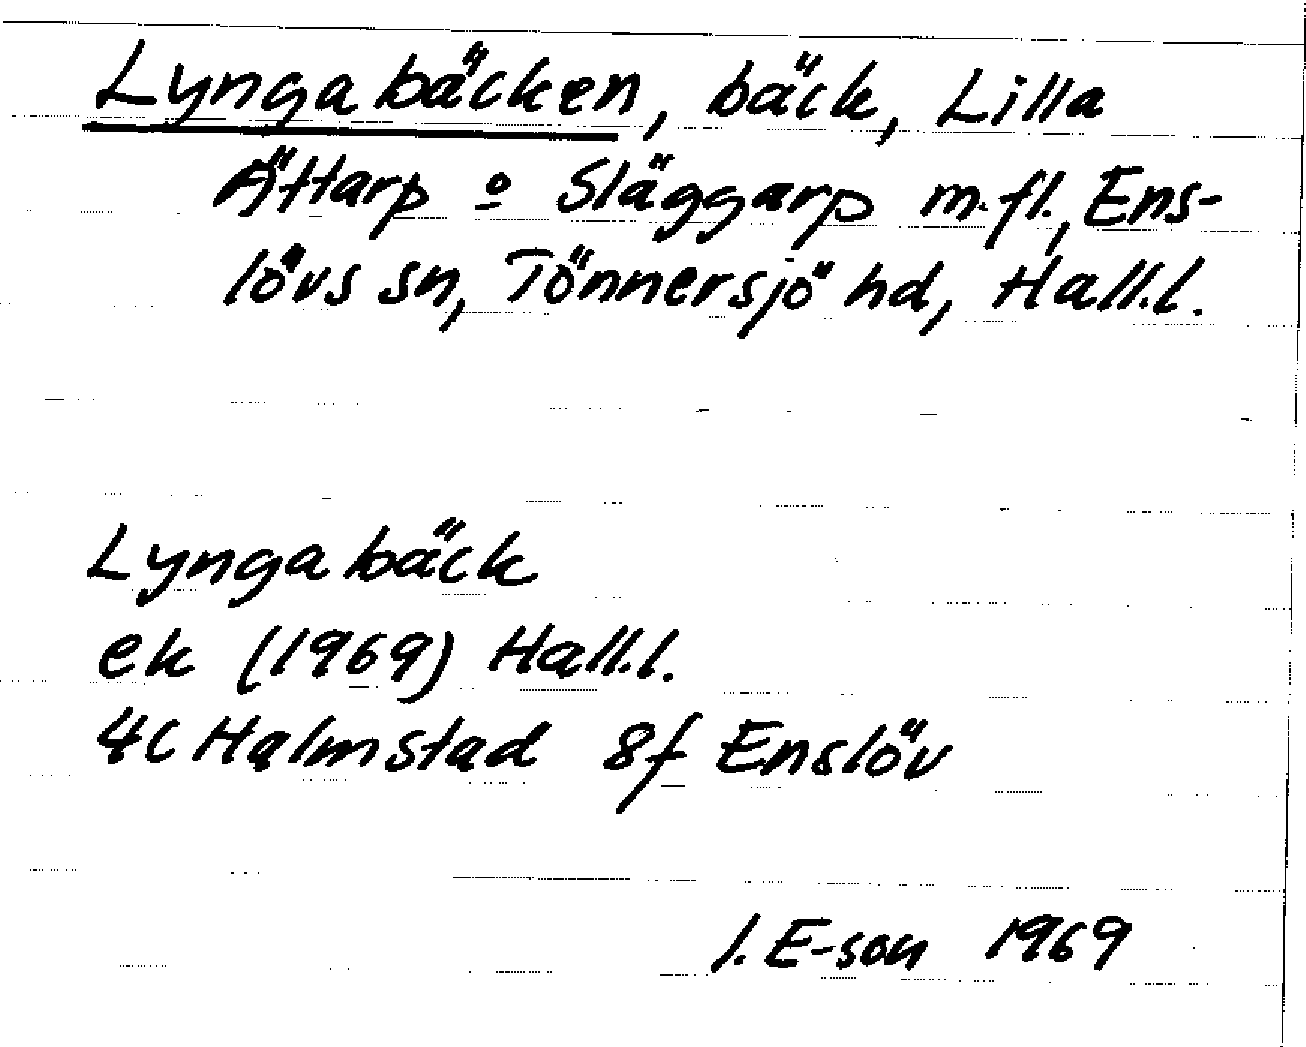 Lyngabäcken, bäck, Lilla
Ättarp o Släggarp m.fl., Ens-
lövs sn, Tönnersjö hd, Hall.l.
Lyngabäck
ek (1969) Hall.l.
4C Halmstad 8f Enslöv
I. E-son 1969